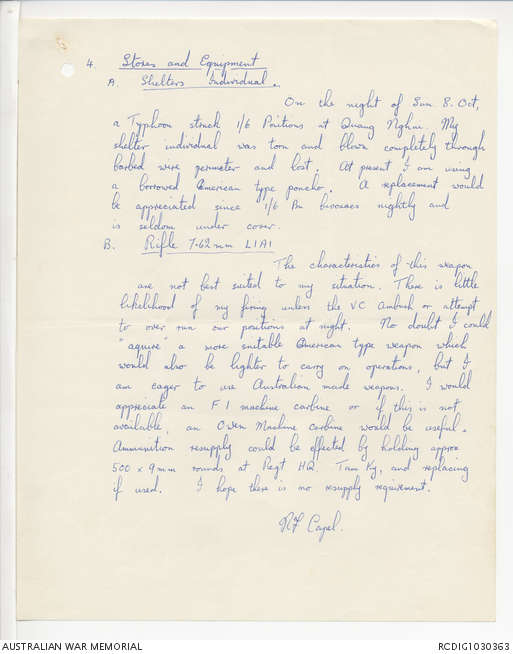 4. Stores and Equipment
A. Shelters Individual.
On the night of Sun. 8. Oct,
a Typhoon struck 1/6 Positions at Quang Nghai. My
shelter individual was torn and blown completely through
barbed wire perimeter and lost. At present I am using
a borrowed American type poncho. A replacement would
be appreciated since 1/6 Bn bivouacs nightly and
is seldom under cover.
B. Rifle 7.62mm L1A1
The characteristics of this weapon
are not best suited to my situation. There is little
likelihood of my firing unless the VC Ambush or attempt
to over run our positions at night. No doubt I could
"aquire" a more suitable American type weapon which
would also be lighter to carry on operations, but I
am eager to use Australian made weapons. I would
appreciate an F1 machine carbine or if this is not
available, an Owen Machine carbine would be useful.
Ammunition resupply could be effected by holding approx
500 x 9mm rounds at Regt HQ Tam Ky, and replacing
if used. I hope there is no resupply requirement.
Capel.
AUSTRALIAN WAR MEMORIAL
RCDIG1030363